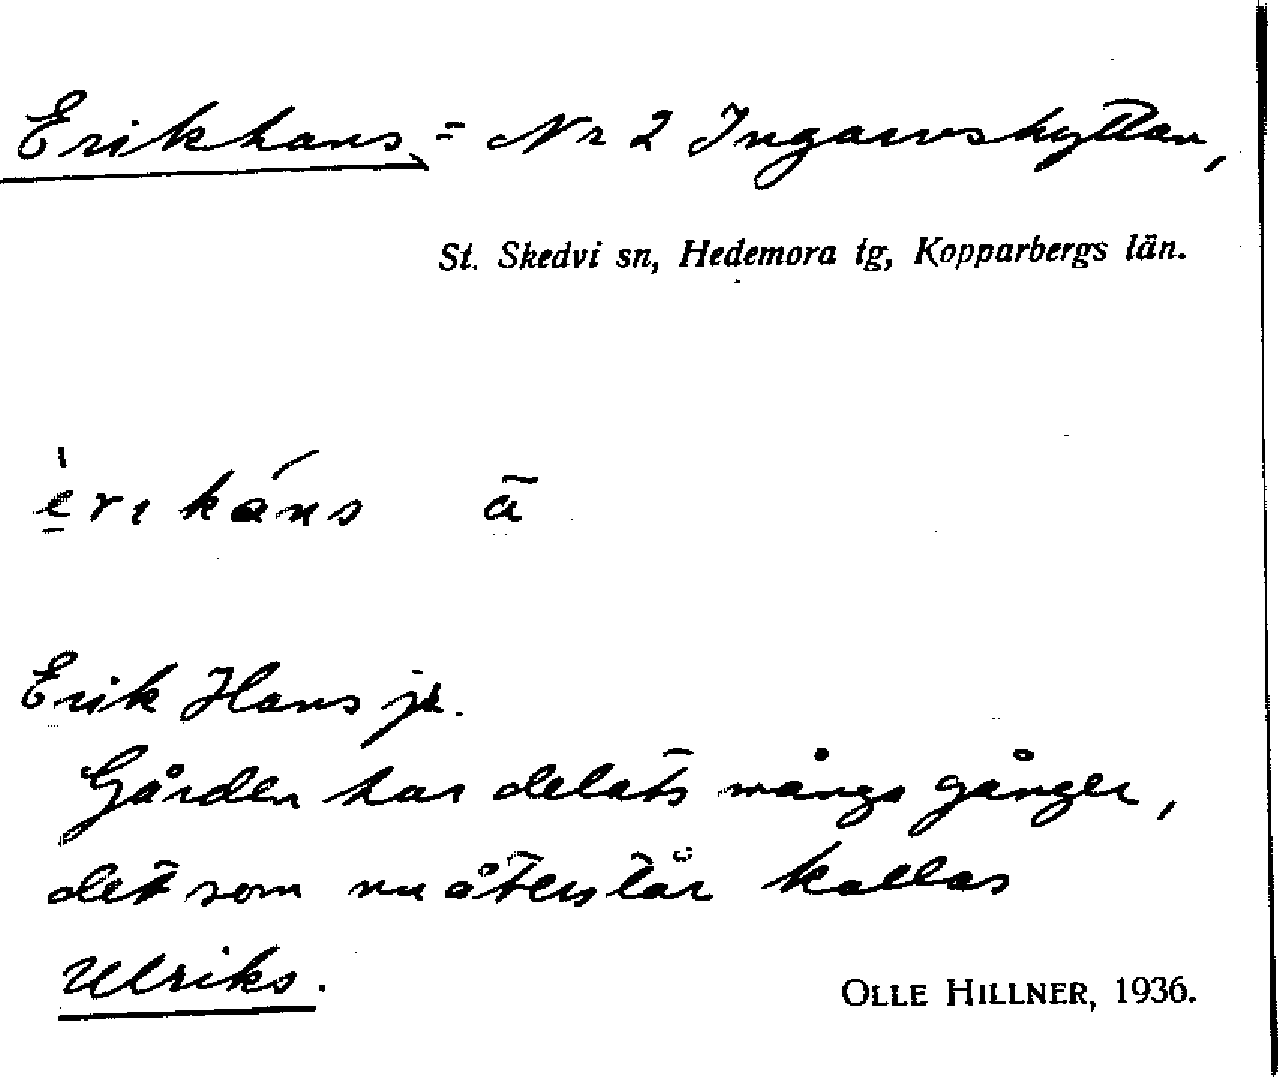 Erikhans = Nr 2 Ingarvshyttan,
St. Skedvi sn, Hedemora tg, Kopparbergs län.
èrikáns ā
Erik Hans
Gården har delats många gånger,
det som nu återstår kallas
Ulriks.
OLLE HILLNER, 1936.